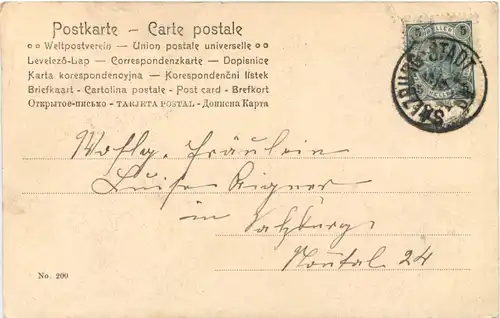 Postkarte – Carte postale
Weltpostverein — Union postale universelle
Levelező-Lap — Correspondenzkarte — Dopisnice
Karta korespondencyjna — Korespondenční listek
Briefkaart - Cartolina postale - Post card - Brefkort
Открытое-письмо - TARJETA POSTAL - Дописна Карта
5 5
HELLER
SALZBURG-STADT
Wohlg. Fräulein
Luise Aigner
in Salzburg.
24
No. 200